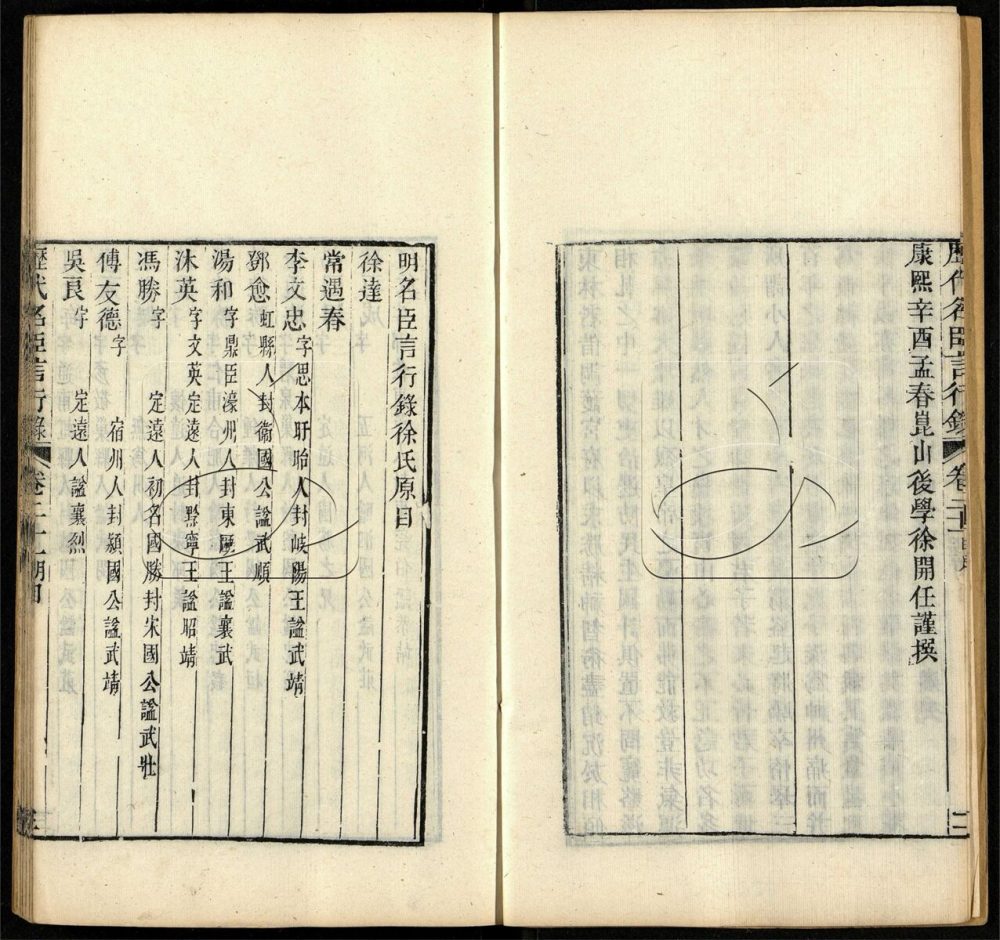 康熙辛酉孟春崑山後學徐開任謹撰
明名臣言行錄徐氏原目
徐達
常遇春
李文忠 字思本盱眙人封岐陽王諡武靖
鄧愈 虹縣人封衞國公諡武順
湯和 字鼎臣濠州人封東甌王諡襄武
沐英 字文英定遠人封黔寧王諡昭靖
馮勝 字 定遠人初名國勝封宋國公諡武壯
傅友德 字 宿州人封潁國公諡武靖
吳良 字 定遠人諡襄烈
歷代名臣言行錄 卷二十一